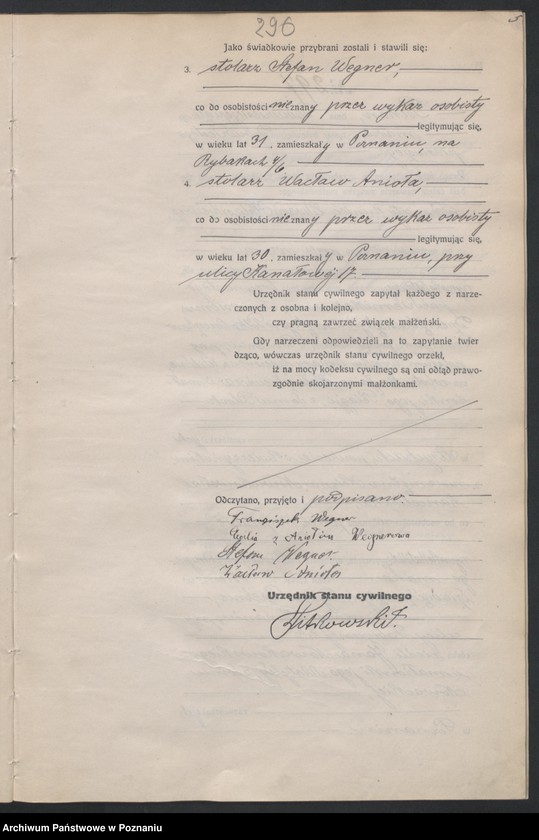 296
5
Jako świadkowie przybrani zostali i stawili się:
3. stolarz Stefan Wegner,
co do osobistości nieznany przez wykaz osobisty
legitymując się,
w wieku lat 31, zamieszkały w Poznaniu, na
Rybakach 4/6
4. stolarz Wacław Anioła,
co do osobistości nieznany przez wykaz osobisty
legitymując się,
w wieku lat 30, zamieszkały w Poznaniu, przy
ulicy Kanałowej 17.
Urzędnik stanu cywilnego zapytał każdego z narze-
czonych z osobna i kolejno,
czy pragną zawrzeć związek małżeński.
Gdy narzeczeni odpowiedzieli na to zapytanie twier
dząco, wówczas urzędnik stanu cywilnego orzekł,
iż na mocy kodeksu cywilnego są oni odtąd prawo-
zgodnie skojarzonymi małżonkami.
Odczytano, przyjęto i podpisano.
Franciszek Wegner
z Aniołów Wegnerowa
Stefan Wegner
Wacław Anioła
Urzędnik stanu cywilnego
Archiwum Państwowe w Poznaniu